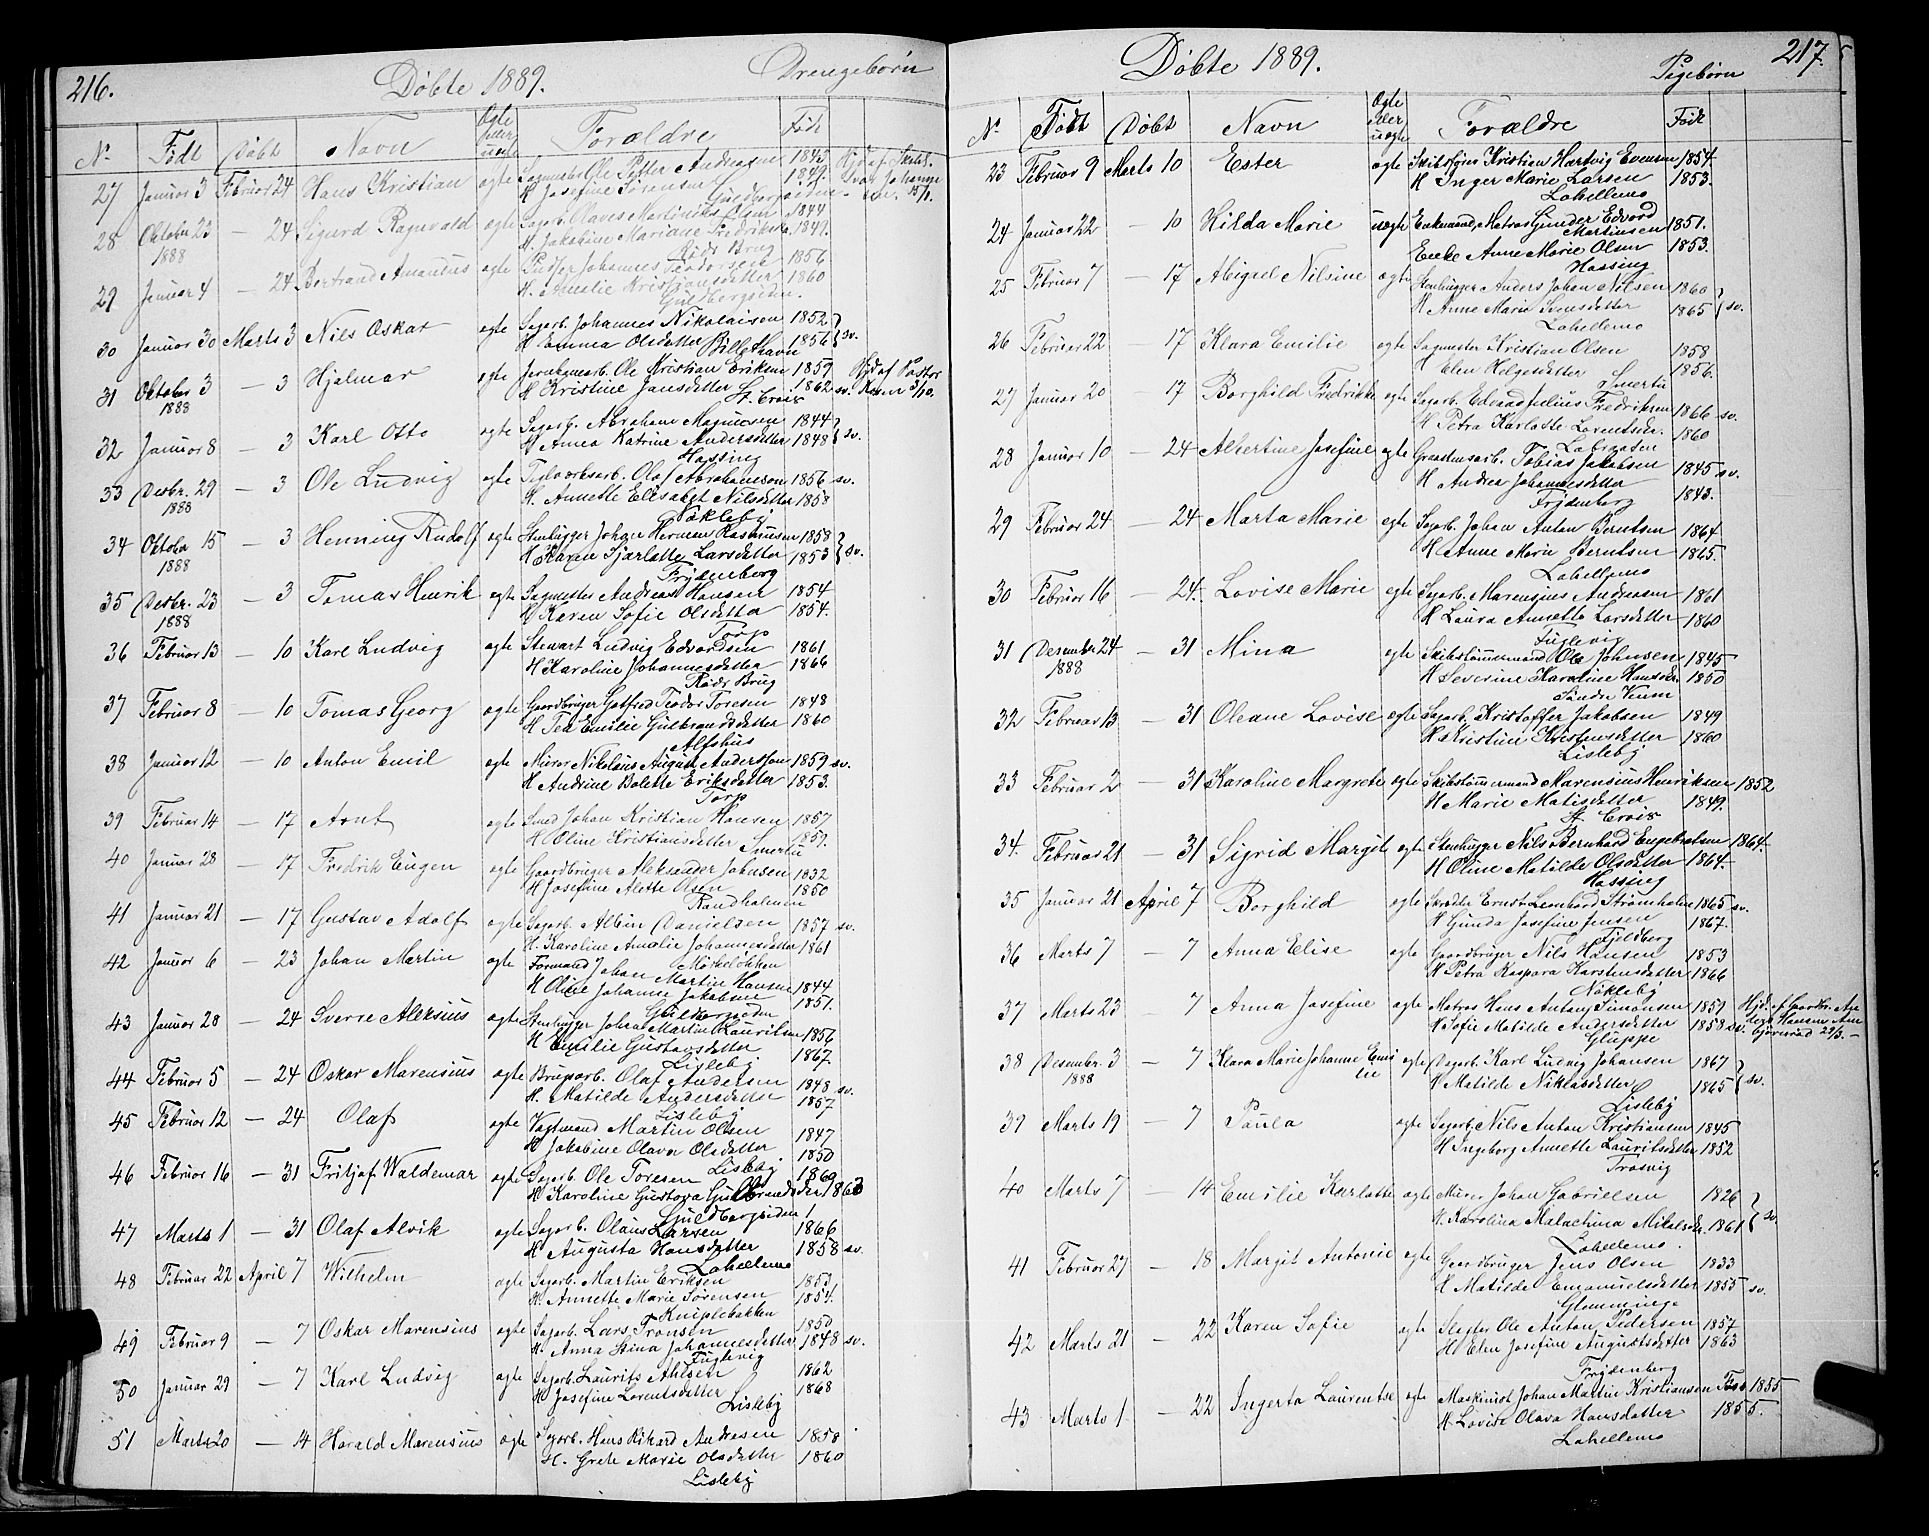 216.
Döbte 1889.
Drengebørn
N.
Født
Döbt
Navn
Ægte eller uægte
Forældre
Født
27 Januar 3 Februar 24 Hans Kristian ægte Sagmester Ole Petter Andreasen 1843 Hjd. af
H Josefine Sørensen 1849.
28 Oktober 23 — 24 Sigurd Ragnvald ægte Sagarb. Olaves Martinius Olsen 1844
1888 H. Jakobine Mariane Fredriksda. 1847.
Røds Brug
29 Januar 4 — 24 Bertrand Amandus ægte Pudser Johannes Teodorsen 1856
H. Amalie Kristiansdatter 1860
Guldbergsiden.
30 Januar 30 Marts 3 Nils Oskar ægte Sagarb. Johannes Nikolaisen 1852
H Emma Olsdatter 1856 sv.
Billethavn
31 Oktober 3 — 3 Hjalmar ægte Jernbanearb. Ole Kristian Eriksen 1859 Hjd af Pastor
1888 H Kristine Jansdatter 1862 sv.
St. Croix
32 Januar 8 — 3 Karl Otto ægte Sagarb. Abraham Magnusen 1844
H Anna Katrine Andersdatter 1848 sv.
Hassing
33 Desbr. 29 — 3 Ole Ludvig ægte Teglverksarb. Olaf Abrahamsen 1856 sv.
1888 H. Annette Elisabet Nilsdatter 1858
Nøkleby
34 Oktober 15 — 3 Henning Rudolf ægte Stenhugger Johan Herman Rasmusen 1858
1888 H Karen Sjarlotte Larsdatter 1853 sv.
Frydenberg
35 Desbr. 23 — 3 Tomas Henrik ægte Sagmester Andreas Hansen 1854
1888 H Karen Sofie Olsdatter 1854.
Torp
36 Februar 13 — 10 Karl Ludvig ægte Stuvart Ludvig Edvardsen 1861
H Karoline Johannesdatter 1866
Røds Brug
37 Februar 8 — 10 Tomas Georg ægte Gaardbruger Gotfred Teodor Toresen 1848
H Tea Emilie Gulbrandsdatter 1860
Alfshus
38 Januar 12 — 10 Anton Emil ægte Murer Nikolaus August Andersson 1859 sv.
H Andrine Bolette Eriksdatter 1853.
Torp
39 Februar 14 — 17 Arnt ægte Smed Johan Kristian Hansen 1857
H Oline Kristiansdatter 1859.
Smertu
40 Januar 28 — 17 Fredrik Eugen ægte Gaardbruger Aleksander Johnsen 1832
H Josefine Alette Olsen 1850
Randholmen
41 Januar 21 — 17 Gustav Adolf ægte Sagarb. Albin Danielsen 1857 sv.
H. Karoline Amalie Johannesdatter 1861
42 Januar 6 — 23 Johan Martin ægte Formand Johan Martin Hansen 1844
H Oline Johanne Jakobsen 1851.
Guldbergsiden
43 Januar 28 — 24 Sverre Aleksius ægte Stenhugger Johan Martin Lauritsen 1856
H Emilie Gustavsdatter 1867.
Lisleby
44 Februar 5 — 24 Oskar Marensius ægte Brugsarb. Olaf Andersen 1848 sv.
H. Matilde Andersdatter 1857
Lisleby
45 Februar 12 — 24 Olaf ægte Vagtmand Martin Olsen 1847
H Jakobine Olava Olsdatter 1850
Lisleby
46 Februar 16 — 31 Fritjof Waldemar ægte Sagarb. Ole Toresen 1860
H Karoline Gustava Gulbrandsdat. 1863
Guldbergsiden
47 Marts 1 — 31 Olaf Alvik ægte Sagarb. Olaus Larsen 1866
H Augusta Hansdatter 1858 sv.
Lahellemo
48 Februar 22 April 7 Wilhelm ægte Sagarb. Martin Eriksen 1853
H. Annette Marie Sørensen 1854.
Kniplebakken
49 Februar 9 — 7 Oskar Marensius ægte Sagarb. Lars Tronsen 1850
H. Anna Stina Johannesdatter 1848 sv.
Fuglevig
50 Januar 29 — 7 Karl Ludvig ægte Sagarb. Laurits Ahlsen 1862
H Josefine Lorentsdatter 1868
Lisleby
51 Marts 20 — 14 Harald Marensius ægte Sagarb. Hans Rikard Andresen 1858
H. Grete Marie Olsdatter 1860
Lisleby
217.
Döbte 1889.
Pigebørn
N.
Født
Döbt
Navn
Ægte eller uægte
Forældre
Født
23 Februar 9 Marts 10 Ester ægte Skibsfører Kristian Hartvig Evensen 1854.
H Inger Marie Larsen 1853.
Lahellemo
24 Januar 22 — 10 Hilda Marie uægte Enkemand, Matros Gunder Edvard Martinsen 1851.
Enke Anne Marie Olsen 1853.
Hassing
25 Februar 7 — 17 Abigael Nilsine ægte Stenhugger Anders Johan Nilsen 1860
H Anne Marie Svensdatter 1865 sv.
Lahellemo
26 Februar 22 — 17 Klara Emilie ægte Sagmester Kristian Olsen 1858
H Elen Helgesdatter 1856.
Smertu
27 Januar 20 — 17 Borghild Fredrikke ægte Sagarb. Edvard Julius Fredriksen 1866 sv.
H Petra Karlotte Lorentsda. 1860
28 Januar 10 — 24 Albertine Josefine ægte Graastensarb. Tobias Jakobsen 1845 sv.
H Andrea Johannesdatter 1843.
Frydenberg
29 Februar 24 — 24 Marta Marie ægte Sagarb. Johan Anton Berntsen 1864
H Anne Marie Berntsen 1865.
Lahellemo
30 Februar 16 — 24. Lovise Marie ægte Sagarb. Marensius Andreasen 1861
H Laura Annette Larsdatter 1860
Fuglevig
31 Desember 24 — 31 Mina ægte Skibstømmermand Ole Johnsen 1845
1888 H Severine Karoline Hansda. 1850
Søndre Kum
32 Februar 13 — 31 Oleane Lovise ægte Sagarb. Kristoffer Jakobsen 1849
H Kristine Kristensdatter 1860
Lisleby
33 Februar 2 — 31 Karoline Margrete ægte Skibstømmermand Marensius Henriksen 1852
H Marie Matisdatter 1849.
St. Croix
34. Februar 21 — 31 Sigrid Margit ægte Stenhugger Nils Bernhard Engebretsen 1864.
H Oline Matilde Olsdatter 1864.
Hassing
35 Januar 21 April 7 Borghild ægte Skrædder Ernst Leonhard Strømholm 1865 sv.
H Gunda Josefine Jensen 1867.
Fjeldberg
36 Marts 7 — 7 Anna Elise ægte Gaardbruger Nils Hansen 1853
H Petra Kaspara Karstensdatter 1866
Nøkleby
37 Marts 23 — 7 Anna Josefine ægte Matros Hans Anton Simonsen 1859 Hjd. af Gaardbr.
H Sofie Matilde Andersdatter 1858 sv.
Gluppe
38 Desember 3 — 7 Klara Marie Johanne Emilie ægte Dagarb. Karl Ludvig Johansen 1867
1888 H Matilde Niklasdatter 1865 sv.
Lisleby
39 Marts 19 — 7 Paula ægte Sagarb. Nils Anton Kristiansen 1845
H Ingeborg Annette Lauritsdatter 1852
Trosvig
40 Marts 7 — 14 Emilie Karlotte ægte Murer Johan Gabrielsen 1826
H. Karolina Malachina Mikelsda. 1861 sv.
Lahellemo.
41 Februar 27 — 18 Margit Antonie ægte Gaardbruger Jens Olsen 1833
H Matilde Emanuelsdatter 1855 sv.
Glemminge
42 Marts 21 — 22 Karen Sofie ægte Slagter Ole Anton Pedersen 1857
H Elen Josefine Augustsdatter 1863
Frydenberg
43 Marts 1 — 22 Ingerta Laurentse ægte Maskinist Johan Martin Kristiansen 1855
H. Lovise Olava Hansdatter 1855.
Lahellemo